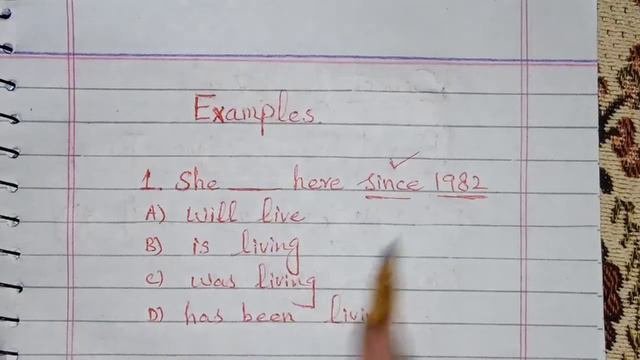 Examples.
1. She ___ here since 1982
A) will live
B) is living
C) was living
D) has been